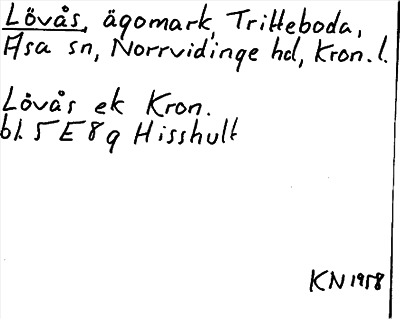 Lövås, ägomark, Tritteboda,
Åsa sn, Norrvidinge hd, Kron. l.
Lövås ek Kron.
bl. 5 E 8 g Hisshult
KN 1958